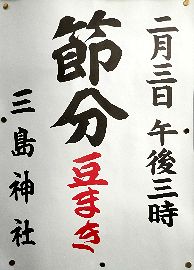 二月三日 午後三時
節分豆まき
三島神社